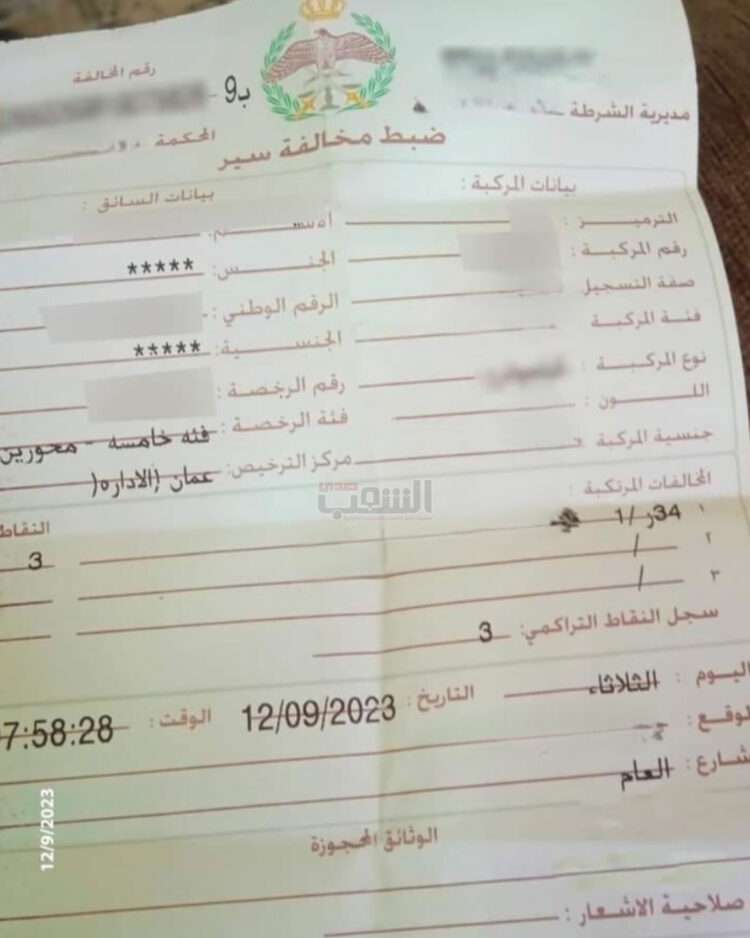 مديرية الشرطة
رقم المخالفة
ب9
المحكمة
ضبط مخالفة سير
بيانات المركبة :
بيانات السائق :
الترميز :
رقم المركبة :
الجنس: *****
صفة التسجيل
الرقم الوطني :
فئة المركبة
الجنسية: *****
نوع المركبة :
رقم الرخصة :
اللون :
فئة الرخصة : فئه خامسه - محورين
جنسية المركبة
مركز الترخيص: عمان (الاداره(
المخالفات المرتكبة :
الشعب
النقاط
١ 34ر /1
3
٢ /
٣ /
سجل النقاط التراكمي: 3
اليوم : الثلاثاء التاريخ : 12/09/2023 الوقت : 7:58:28
شارع : العام
الوثائق المحجوزة
صلاحية الاشعار :
12/9/2023